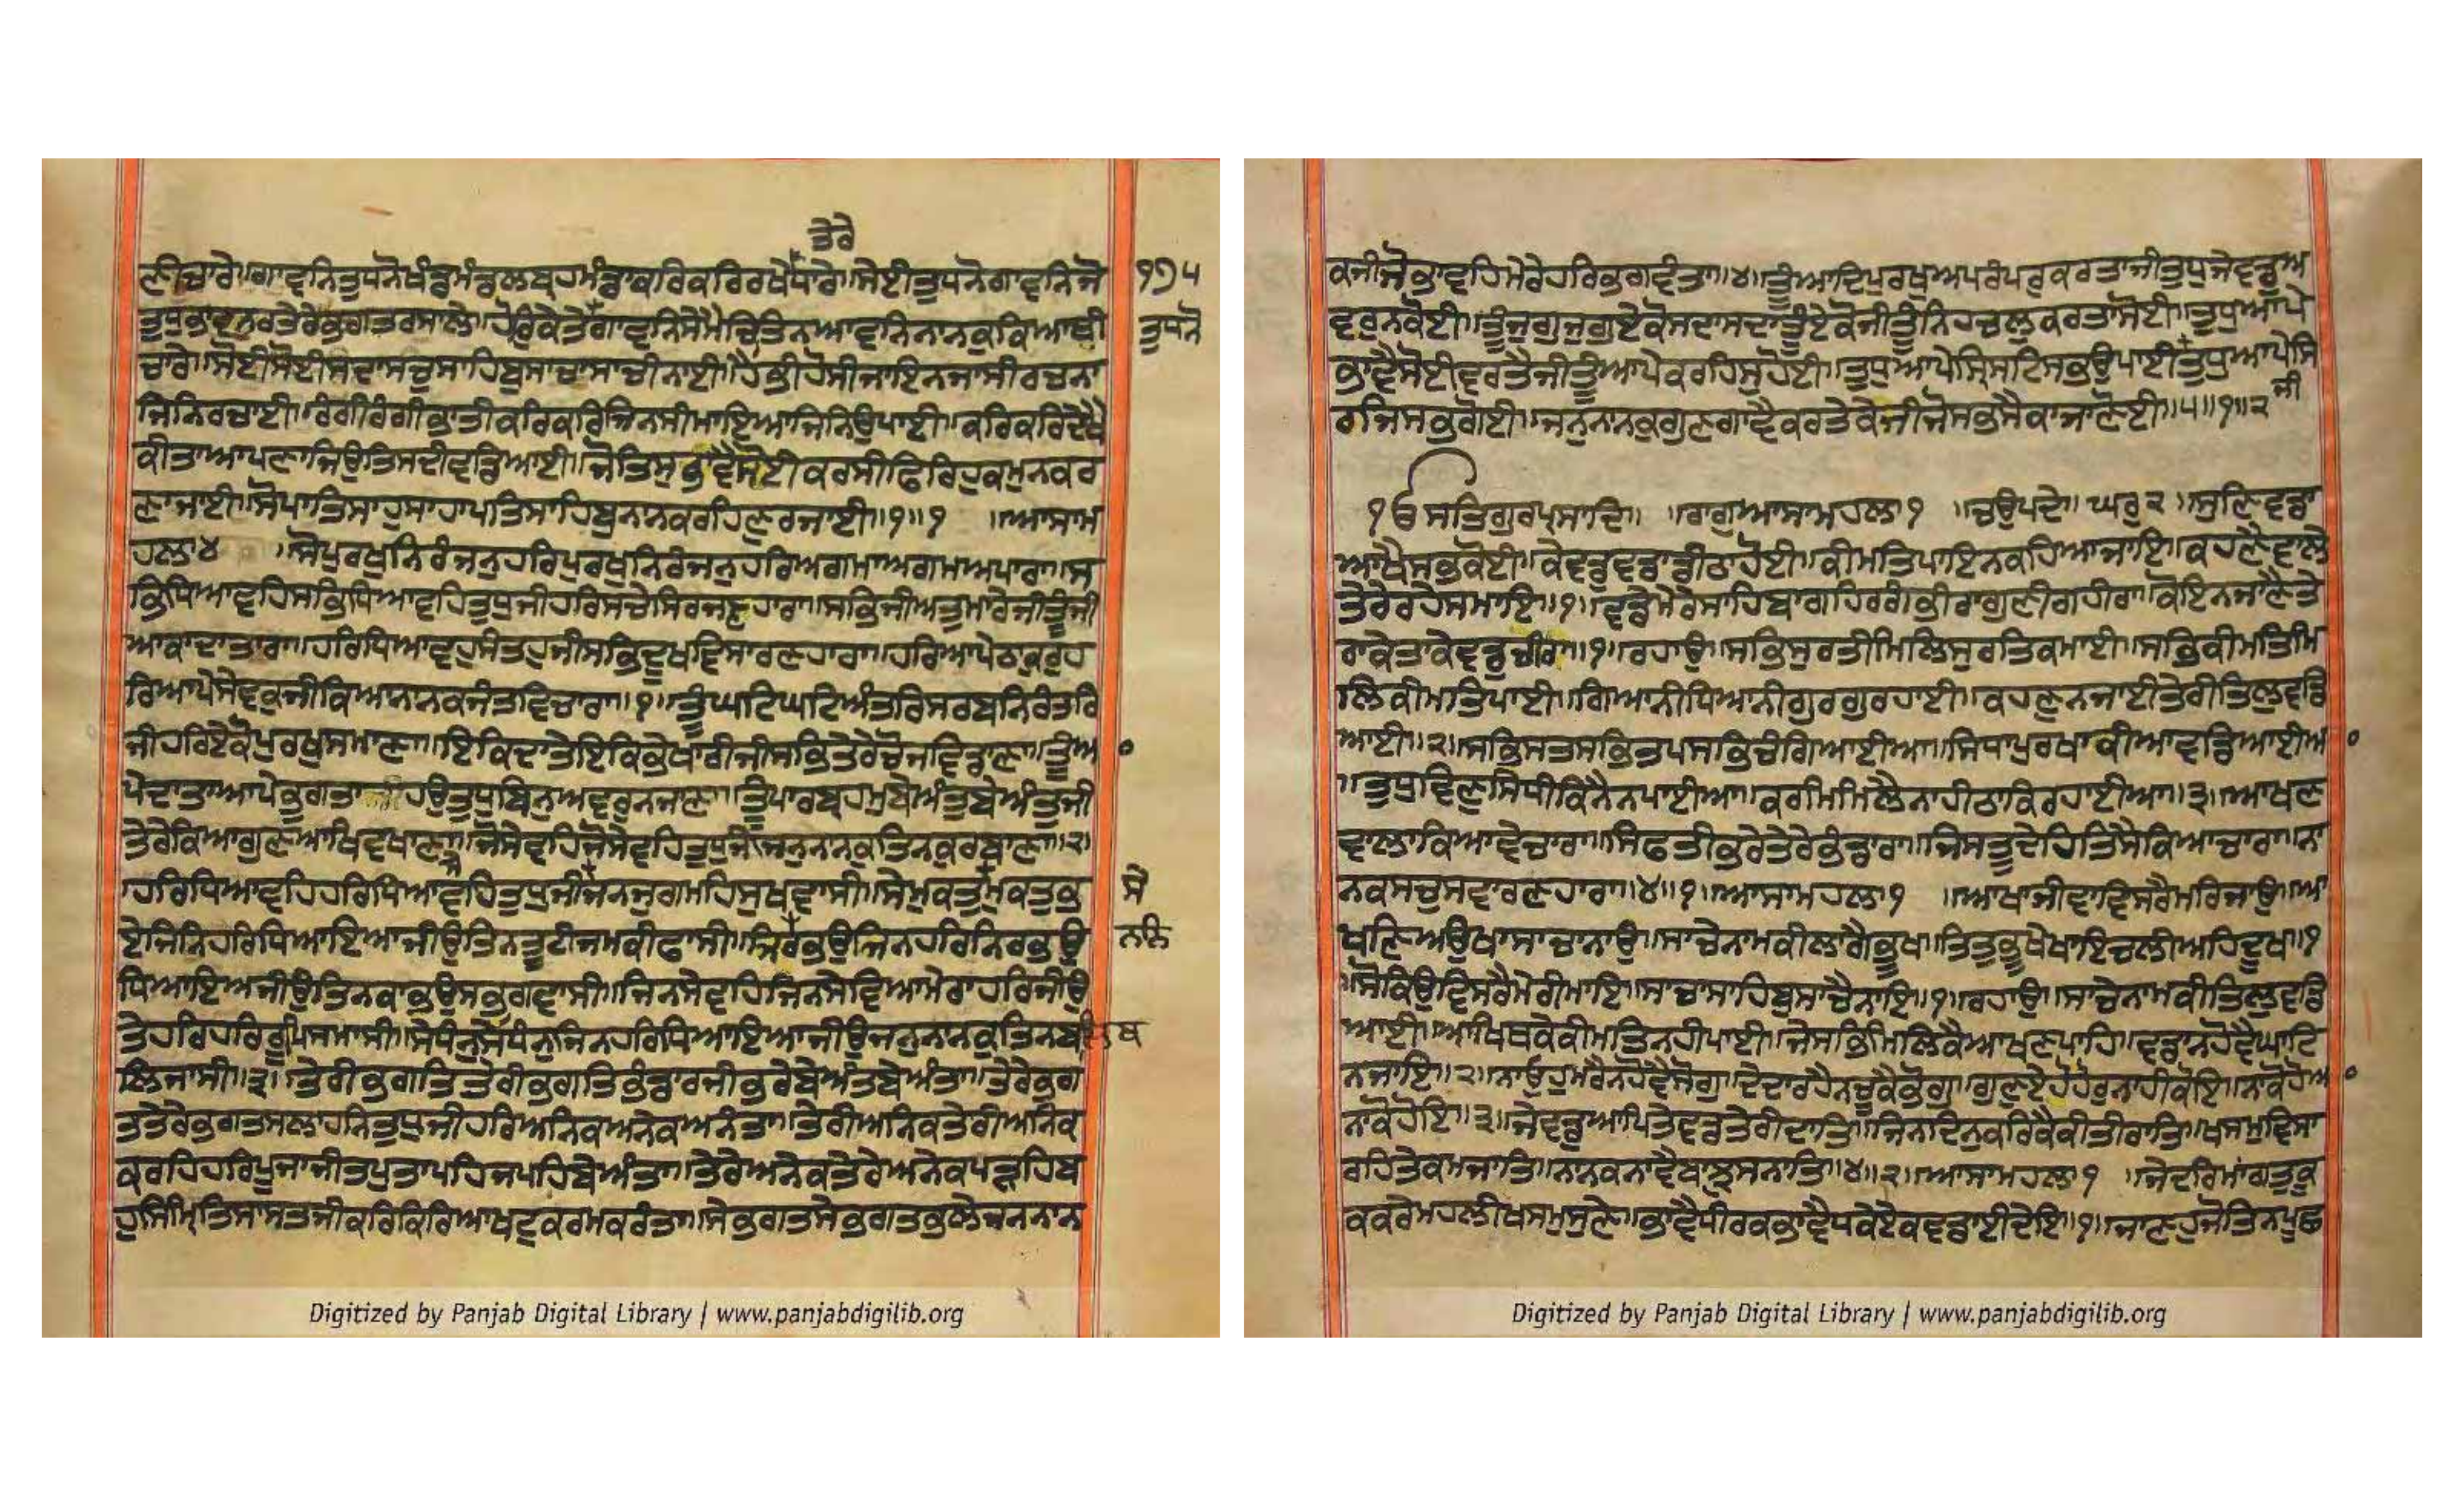 ਤੇਰੇ
ਣੀਚਾਰੇ॥ਗਾਵਨਿਤੁਧਨੋਖੰਡਮੰਡਲਬ੍ਰਹਮੰਡਾਕਰਿਕਰਿਰਖੇਧਾਰੇ॥ਸੇਈਤੁਧਨੋਗਾਵਨਿਜੋ
੧੭੫
ਤੁਧੁਭਾਵਨਰਤੇਤੇਰੇਭਗਤਰਸਾਲੇ॥ਹੋਰਿਕੇਤੇਗਾਵਨਿਸੇਮੈਚਿਤਿਨਆਵਨਿਨਾਨਕੁਕਿਆਬੀ
ਤੁਧਨੋ
ਚਾਰੇ॥ਸੋਈਸੋਈਸਦਾਸਚੁਸਾਹਿਬੁਸਾਚਾਸਾਚੀਨਾਈ॥ਹੈਭੀਹੋਸੀਜਾਇਨਜਾਸੀਰਚਨਾ
ਜਿਨਿਰਚਾਈ॥ਰੰਗੀਰੰਗੀਭਾਤੀਕਰਿਕਰਿਜਿਨਸੀਮਾਇਆਜਿਨਿਉਪਾਈ॥ਕਰਿਕਰਿਦੇਖੈ
ਕੀਤਾਆਪਣਾਜਿਉਤਿਸਦੀਵਡਿਆਈ॥ਜੋਤਿਸੁਭਾਵੈਸੋਈਕਰਸੀਫਿਰਿਹੁਕਮੁਨਕਰ
ਣਾਜਾਈ॥ਸੋਪਾਤਿਸਾਹੁਸਾਹਾਪਤਿਸਾਹਿਬੁਨਾਨਕਰਹਿਣੁਰਜਾਈ॥੧॥੧ ॥ਆਸਾਮ
ਹਲਾ੪ ॥ਸੋਪੁਰਖੁਨਿਰੰਜਨੁਹਰਿਪੁਰਖੁਨਿਰੰਜਨੁਹਰਿਅਗਮਾਅਗਮਅਪਾਰਾ॥ਸ
ਭਿਧਿਆਵਹਿਸਭਿਧਿਆਵਹਿਤੁਧੁਜੀਹਰਿਸਚੇਸਿਰਜਣਹਾਰਾ॥ਸਭਿਜੀਅਤੁਮਾਰੇਜੀਤੂੰਜੀ
ਆਕਾਦਾਤਾਰਾ॥ਹਰਿਧਿਆਵਹੁਸੰਤਹੁਜੀਸਭਿਦੂਖਵਿਸਾਰਣਹਾਰਾ॥ਹਰਿਆਪੇਠਾਕੁਰੁਹ
ਰਿਆਪੇਸੇਵਕੁਜੀਕਿਆਨਾਨਕਜੰਤਵਿਚਾਰਾ॥੧॥ਤੂੰਘਟਿਘਟਿਅੰਤਰਿਸਰਬਨਿਰੰਤਰਿ
ਜੀਹਰਿਏਕੋਪੁਰਖੁਸਮਾਣਾ॥ਇਕਿਦਾਤੇਇਕਿਭੇਖਾਰੀਜੀਸਭਿਤੇਰੇਚੋਜਵਿਡਾਣਾ॥ਤੂੰਆ
ਪੇਦਾਤਾਆਪੇਭੁਗਤਾਜੀਹਉਤੁਧੁਬਿਨੁਅਵਰੁਨਜਾਣਾ॥ਤੂੰਪਾਰਬ੍ਰਹਮੁਬੇਅੰਤੁਬੇਅੰਤੁਜੀ
ਤੇਰੇਕਿਆਗੁਣਆਖਿਵਖਾਣਾ॥ਜੋਸੇਵਹਿਜੋਸੇਵਹਿਤੁਧੁਜੀਜਨੁਨਾਨਕੁਤਿਨਕੁਰਬਾਣਾ॥੨॥
ਹਰਿਧਿਆਵਹਿਹਰਿਧਿਆਵਹਿਤੁਧੁਜੀਜਨਜੁਗਮਹਿਸੁਖਵਾਸੀ॥ਸੇਮੁਕਤੁਮੁਕਤੁਭ
ਸੇ
ਏਜਿਨਿਹਰਿਧਿਆਇਆਜੀਉਤਿਨਤੂਟੀਜਮਕੀਫਾਸੀ॥ਜਿਨਿਰਭਉਜਿਨਹਰਿਨਿਰਭਉ
ਧਿਆਇਅਜੀਉਤਿਨਕਾਭਉਸਭੁਗਵਾਸੀ॥ਜਿਨਸੇਵਹਿਜਿਨਸੇਵਿਆਮੇਰਾਹਰਿਜੀਉ
ਤੇਹਰਿਹਰਿਰੂਪਿਸਮਾਸੀ॥ਸੇਧੰਨੁਸੇਧੰਨੁਜਿਨਹਰਿਧਿਆਇਆਜੀਉਜਨੁਨਾਨਕੁਤਿਨਬ
ਲਿਜਾਸੀ॥੩॥ਤੇਰੀਭਗਤਿਤੇਰੀਭਗਤਿਭੰਡਾਰਜੀਭਰੇਬੇਅੰਤਬੇਅੰਤਾ॥ਤੇਰੇਭਗ
ਤਤੇਰੇਭਗਤਸਲਾਹਨਿਤੁਧੁਜੀਹਰਿਅਨਿਕਅਨੇਕਅਨੰਤਾ॥ਤੇਰੀਅਨਿਕਤੇਰੀਅਨਿਕ
ਕਰਹਿਹਰਿਪੂਜਾਜੀਤਪੁਤਾਪਹਿਜਪਹਿਬੇਅੰਤਾ॥ਤੇਰੇਅਨੇਕਤੇਰੇਅਨੇਕਪੜਹਿਬ
ਹੁਸਿੰਮ੍ਰਿਤਿਸਾਸਤਜੀਕਰਿਕਿਰਿਆਖਟੁਕਰਮਕਰੰਤਾ॥ਸੇਭਗਤਸੇਭਗਤਭਲੇਜਨਨਾਨ
Digitized by Panjab Digital Library | www.panjabdigilib.org
ਕਜੀਜੋਭਾਵਹਿਮੇਰੇਹਰਿਭਗਵੰਤਾ॥੪॥ਤੂੰਆਦਿਪੁਰਖੁਅਪਰੰਪਰੁਕਰਤਾਜੀਤੁਧੁਜੇਵਡੁਅ
ਵਰੁਨਕੋਈ॥ਤੂੰਜੁਗੁਜੁਗੁਏਕੋਸਦਾਸਦਾਤੂੰਏਕੋਜੀਤੂੰਨਿਹਚਲੁਕਰਤਾਸੋਈ॥ਤੁਧੁਆਪੇ
ਭਾਵੈਸੋਈਵਰਤੈਜੀਤੂੰਆਪੇਕਰਹਿਸੁਹੋਈ॥ਤੁਧੁਆਪੇਸ੍ਰਿਸਟਿਸਭਉਪਾਈਤੁਧੁਆਪੇਸਿ
ਜੀ
ਰਜਿਸਭਗੋਈ॥ਜਨੁਨਾਨਕੁਗੁਣਗਾਵੈਕਰਤੇਕੇਜੀਜੋਸਭਸੈਕਾਜਾਣੋਈ॥੫॥੧॥੨
੧ੳਸਤਿਗੁਰਪ੍ਰਸਾਦਿ॥ ॥ਰਾਗੁਆਸਾਮਹਲਾ੧ ॥ਚਉਪਦੇ॥ਘਰੁ੨॥ਸੁਣਿਵਡਾ
ਆਖੈਸਭਕੋਈ॥ਕੇਵਡੁਵਡਾਡੀਠਾਹੋਈ॥ਕੀਮਤਿਪਾਇਨਕਹਿਆਜਾਇ॥ਕਹਣੈਵਾਲੇ
ਤੇਰੇਰਹੇਸਮਾਇ॥੧॥ਵਡੇਮੇਰੇਸਾਹਿਬਾਗਹਿਰਗੰਭੀਰਾਗੁਣੀਗਹੀਰਾ॥ਕੋਇਨਜਾਣੈਤੇ
ਰਾਕੇਤਾਕੇਵਡੁਚੀਰਾ॥੧॥ਰਹਾਉ॥ਸਭਿਸੁਰਤੀਮਿਲਿਸੁਰਤਿਕਮਾਈ॥ਸਭਿਕੀਮਤਿਮਿ
ਲਿਕੀਮਤਿਪਾਈ॥ਗਿਆਨੀਧਿਆਨੀਗੁਰਗੁਰਹਾਈ॥ਕਹਣੁਨਜਾਈਤੇਰੀਤਿਲੁਵਡਿ
ਆਈ॥੨॥ਸਭਿਸਤਸਭਿਤਪਸਭਿਚੰਗਿਆਈਆ॥ਸਿਧਾਪੁਰਖਾਕੀਆਵਡਿਆਈਆ
॥ਤੁਧੁਵਿਣੁਸਿਧੀਕਿਨੈਨਪਾਈਆ॥ਕਰਮਿਮਿਲੈਨਾਹੀਠਾਕਿਰਹਾਈਆ॥੩॥ਆਖਣ
ਵਾਲਾਕਿਆਵੇਚਾਰਾ॥ਸਿਫਤੀਭਰੇਤੇਰੇਭੰਡਾਰਾ॥ਜਿਸਤੂਦੇਹਿਤਿਸੈਕਿਆਚਾਰਾ॥ਨਾ
ਨਕਸਚੁਸਵਾਰਣਹਾਰਾ॥੪॥੧॥ਆਸਾਮਹਲਾ੧ ॥ਆਖਾਜੀਵਾਵਿਸਰੈਮਰਿਜਾਉ॥ਆ
ਖਣਿਅਉਖਾਸਾਚਾਨਾਉ॥ਸਾਚੇਨਾਮਕੀਲਾਗੈਭੂਖ॥ਤਿਤੁਭੂਖੈਖਾਇਚਲੀਅਹਿਦੂਖ॥੧
॥ਸੋਕਿਉਵਿਸਰੈਮੇਰੀਮਾਇ॥ਸਾਚਾਸਾਹਿਬੁਸਾਚੈਨਾਇ॥੧॥ਰਹਾਉ॥ਸਾਚੇਨਾਮਕੀਤਿਲੁਵਡਿ
ਆਈ॥ਆਖਿਥਕੇਕੀਮਤਿਨਹੀਪਾਈ॥ਜੇਸਭਿਮਿਲਿਕੈਆਖਣਪਾਹਿ॥ਵਡਾਨਹੋਵੈਘਾਟਿ
ਨਜਾਇ॥੨॥ਨਾਓਹੁਮਰੈਨਹੋਵੈਸੋਗੁ॥ਦੇਂਦਾਰਹੈਨਚੂਕੈਭੋਗੁ॥ਗੁਣਏਹੋਹੋਰੁਨਾਹੀਕੋਇ॥ਨਾਕੋਹੋਆ
ਨਾਕੋਹੋਇ॥੩॥ਜੇਵਡੁਆਪਿਤੇਵਡੁਤੇਰੀਦਾਤਿ॥ਜਿਨਿਦਿਨੁਕਰਿਕੈਕੀਤੀਰਾਤਿ॥ਖਸਮੁਵਿਸਾ
ਰਹਿਤੇਕਮਜਾਤਿ॥ਨਾਨਕਨਾਵੈਬਾਝੁਸਨਾਤਿ॥੪॥੨॥ਆਸਾਮਹਲਾ੧ ॥ਜੇਦਰਿਮਾਂਗਤੁਕੂ
ਕਕਰੇਮਹਲੀਖਸਮੁਸੁਣੇ॥ਭਾਵੈਧੀਰਕਭਾਵੈਧਕੇਏਕਵਡਾਈਦੇਇ॥੧॥ਜਾਣਹੁਜੋਤਿਨਪੂਛ
Digitized by Panjab Digital Library | www.panjabdigilib.org